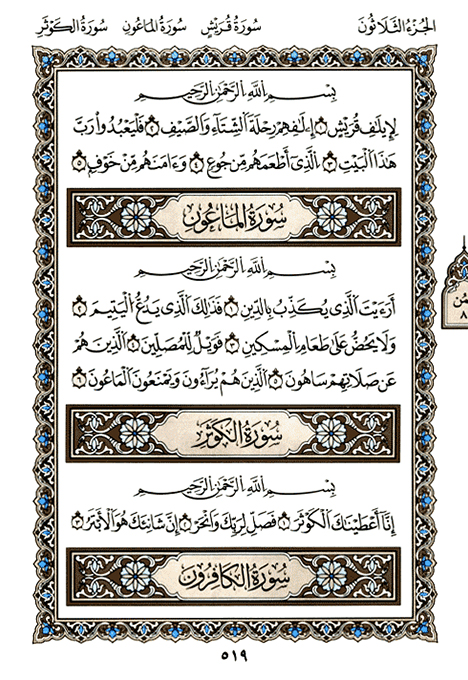 الجُزْءُ الثَّلَاثُونَ سُورَةُ قُرَيْشٍ سُورَةُ المَاعُونِ سُورَةُ الكَوْثَرِ
بِسْمِ اللَّهِ الرَّحْمَٰنِ الرَّحِيمِ
لِإِيلَٰفِ قُرَيْشٍ ١ إِۦلَٰفِهِمْ رِحْلَةَ الشِّتَآءِ وَالصَّيْفِ ٢ فَلْيَعْبُدُواْ رَبَّ
هَٰذَا الْبَيْتِ ٣ الَّذِي أَطْعَمَهُم مِّن جُوعٍ ٤ وَءَامَنَهُم مِّنْ خَوْفٍ ٥
سُورَةُ الْمَاعُونِ
بِسْمِ اللَّهِ الرَّحْمَٰنِ الرَّحِيمِ
أَرَءَيْتَ الَّذِي يُكَذِّبُ بِالدِّينِ ١ فَذَٰلِكَ الَّذِي يَدُعُّ الْيَتِيمَ ٢
وَلَا يَحُضُّ عَلَىٰ طَعَامِ الْمِسْكِينِ ٣ فَوَيْلٌ لِّلْمُصَلِّينَ ٤ الَّذِينَ هُمْ
عَن صَلَاتِهِمْ سَاهُونَ ٥ الَّذِينَ هُمْ يُرَآءُونَ وَيَمْنَعُونَ الْمَاعُونَ ٦
سُورَةُ الْكَوْثَرِ
بِسْمِ اللَّهِ الرَّحْمَٰنِ الرَّحِيمِ
إِنَّآ أَعْطَيْنَاكَ الْكَوْثَرَ ١ فَصَلِّ لِرَبِّكَ وَانْحَرْ ٢ إِنَّ شَانِئَكَ هُوَ الْأَبْتَرُ ٣
سُورَةُ الْكَافِرُونَ
٥١٩